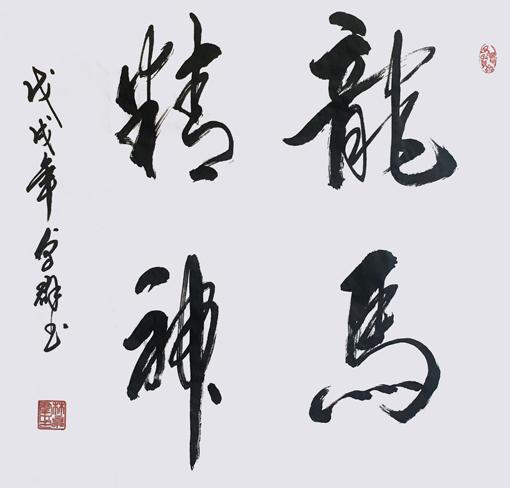 龍馬
精神
戊戌年學群书